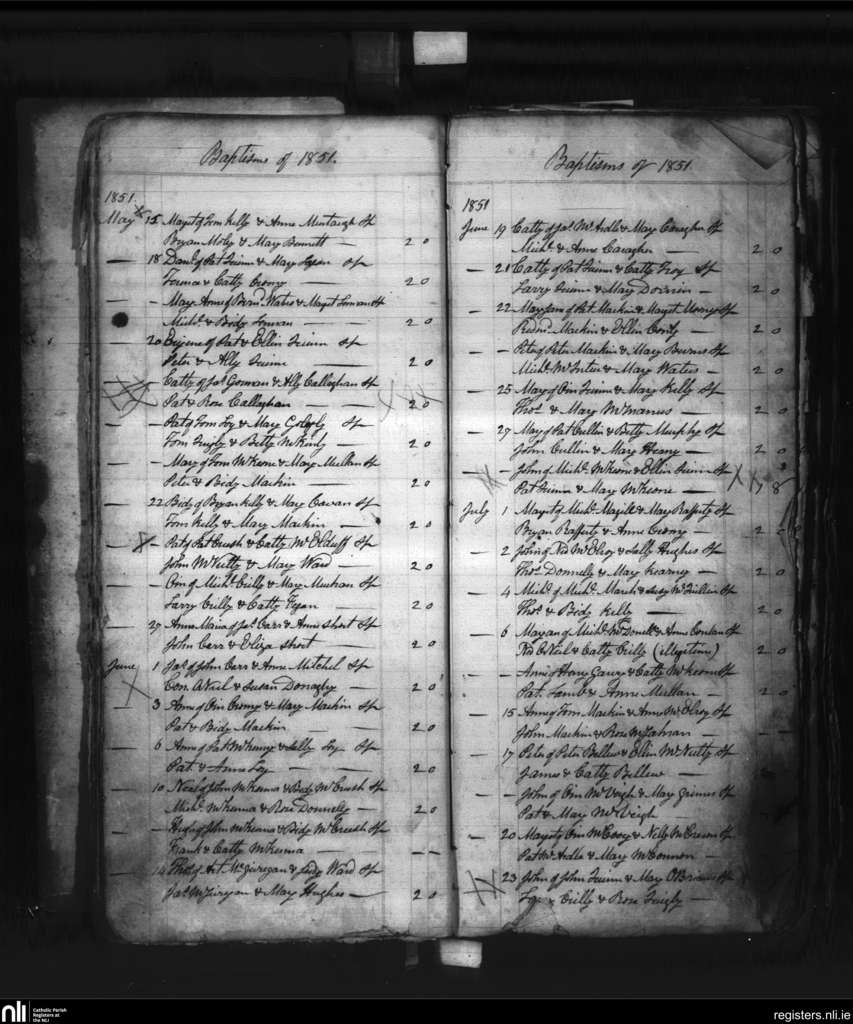 Baptisms of 1851.
1851
May 15 Magt of Tom Kelly & Anne Sp
Bryan & Mary Bennett — 2 0
— 18 Danl of Pat Quinn & Mary Sp
& Catty Crony — 2 0
— - Mary Anne of Waters & Magt Sp
Michl & Bidy — 2 0
— 20 Eugene of Pat & Ellin Quinn Sp
Peter & Ally Quinn 2 0
— - Catty of Jas Gorman & Ally Callaghan Sp
Pat & Rose Callaghan — 2 0
— - Pat of Tom Loy & Mary Sp
Tom Quigly & Betty — 2 0
— - Mary of Tom McKeone & Mary Mullan Sp
Peter & Bidy Mackin — 2 0
— 22 Bidy of Bryan Kelly & Mary Cavan Sp
Tom Kelly & Mary Mackin — 2 0
— - Pat of Pat Crush & Catty McElduff Sp
John McNutty & Mary Ward — 2 0
— - Own of Michl Cully & Mary Sp
Larry Cully & Catty — 2 0
— 27 Anne Maria of Jas Carr & Anne Short Sp
John Carr & Eliza Short — 2 0
June 1 Jas of John Carr & Anne Mitchel Sp
Con. ONeil & Susan Donaghy — 2 0
— 3 Anne of Own Crony & Mary Mackin Sp
Pat & Bidy Mackin — 2 0
— 6 Anne of Pat McKenny & Sally Loy Sp
Pat & Anne Loy — 2 0
— 10 Neal of John McKenna & Bidy McCrush Sp
Michl McKenna & Rose Donnelly — 2 0
— - of John McKenna & Bidy McCrush Sp
Frank & Catty McKenna — - -
— 14 Thos of Art & Judy Ward Sp
Jas & Mary Hughes — 2 0
Baptisms of 1851
1851
June 19 Catty of Jas McArdle & Mary Caragher Sp
Michl & Anne Caragher — 2 0
— 21 Catty of Pat Quinn & Catty Troy Sp
Larry Quinn & Mary — 2 0
— 22 Mary Jane of Pat Mackin & Magt Sp
Mackin & Ellin — 2 0
— - Peter of Peter Mackin & Mary Burns Sp
Michl McEnter & Mary Waters — 2 0
— 25 Mary of Own Quinn & Mary Kelly Sp
Thos & Mary McManus — 2 0
— 27 Mary of Pat Cullin & Betty Murphy Sp
John Cullin & Mary Heany — 2 0
— - John of Michl McKeone & Ellin Quinn Sp
Pat Quinn & Mary McKeone — 8
July 1 Magt of Michl Magill & Mary Rafferty Sp
Bryan Rafferty & Anne Crony — 2 0
— 2 John of Ned McElroy & Sally Hughes Sp
Thos Donnelly & Mary Kearney — 2 0
— 4 Michl of Michl & Susy McQuillin Sp
Thos & Bidy Kelly — 2 0
— 6 Maryan of Michl McDonell & Anne Conlan Sp
Ned ONeil & Catty Cully (illegitime) 2 0
— - Anne of Henry Garvey & Catty McKeon Sp
Pat. Lamb & Anne Mullan — 2 0
— 15 Anne of Tom Mackin & Anne McElroy Sp
John Mackin & Rose McMahan —
— 17 Peter of Peter Bellew & Ellin McNutty Sp
James & Catty Bellew —
— - John of Own McVeigh & Mary Grimes Sp
Pat & Mary McVeigh —
— 20 Magt of Own McEvoy & Nelly Sp
Pat McArdle & Mary McConnon —
— 23 John of John Quinn & Mary OBrien Sp
Cully & Rose Quigly —
nli
Catholic Parish
Registers at
the NLI
registers.nli.ie